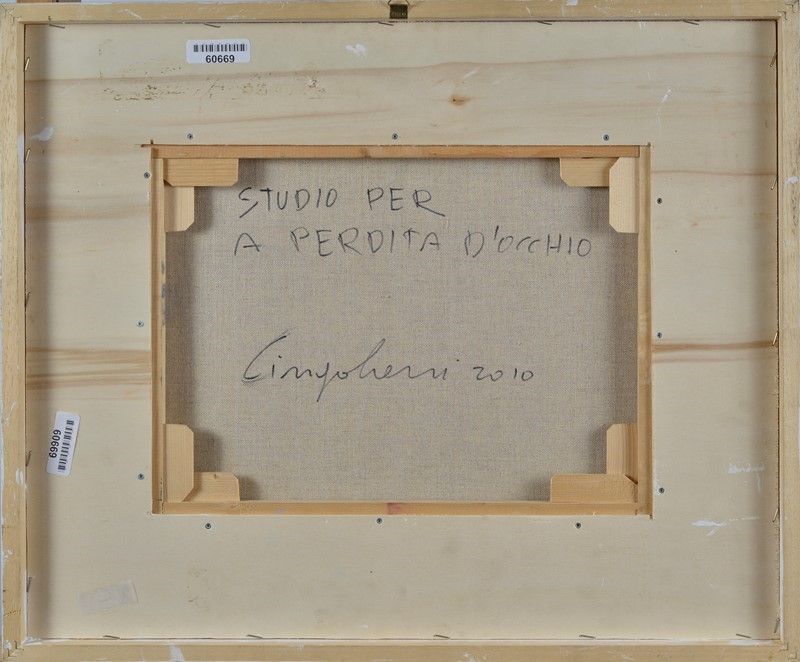 60669
STUDIO PER
A PERDITA D'OCCHIO
Cingolani 2010
69909